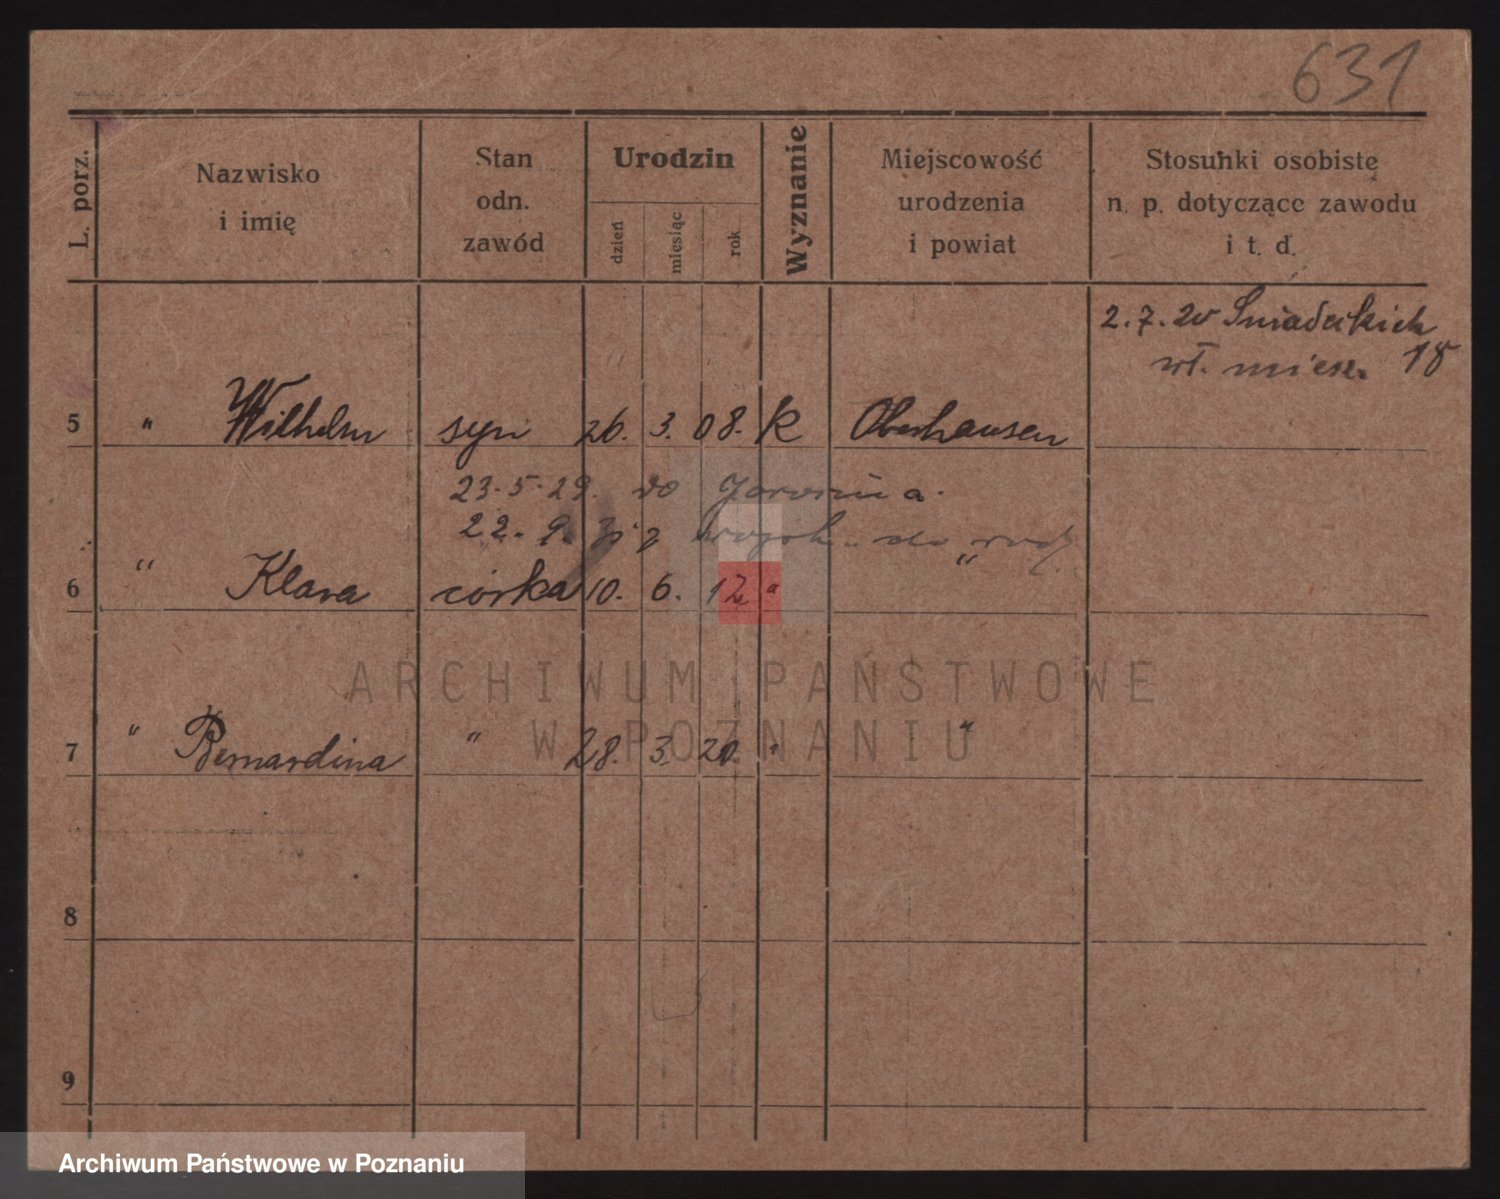 631
L. porz.
Nazwisko
i imię
Stan
odn.
zawód
Urodzin
dzień
miesiąc
rok
Wyznanie
Miejscowość
urodzenia
i powiat
Stosunki osobiste
n. p. dotyczące zawodu
i t. d.
2. 7. 20 Śniadeckich
wł. miesz. 18
5 " Wilhelm syn 26. 3. 08. k Oberhausen
23. 5. 29. do Jarocina.
22. 9. z wojsk. do
6 " Klara córka 10. 6. 12 " "
7 " Bernardina " 28. 3. 20. " "
8
9
ARCHIWUM PAŃSTWOWE
W POZNANIU
Archiwum Państwowe w Poznaniu